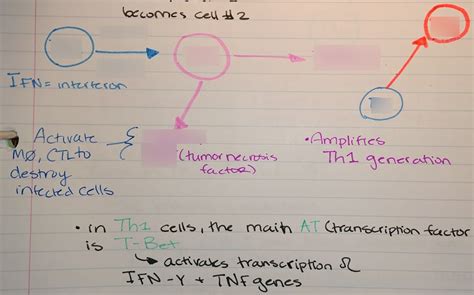 becomes cell #2
IFN = interferon
Activate
MØ, CTL to
destroy
infected cells
(tumor necrosis
factor)
• Amplifies
Th1 generation
• in Th1 cells, the main AT (transcription factor
is T-Bet
↳ activates transcription of
IFN-γ + TNF genes